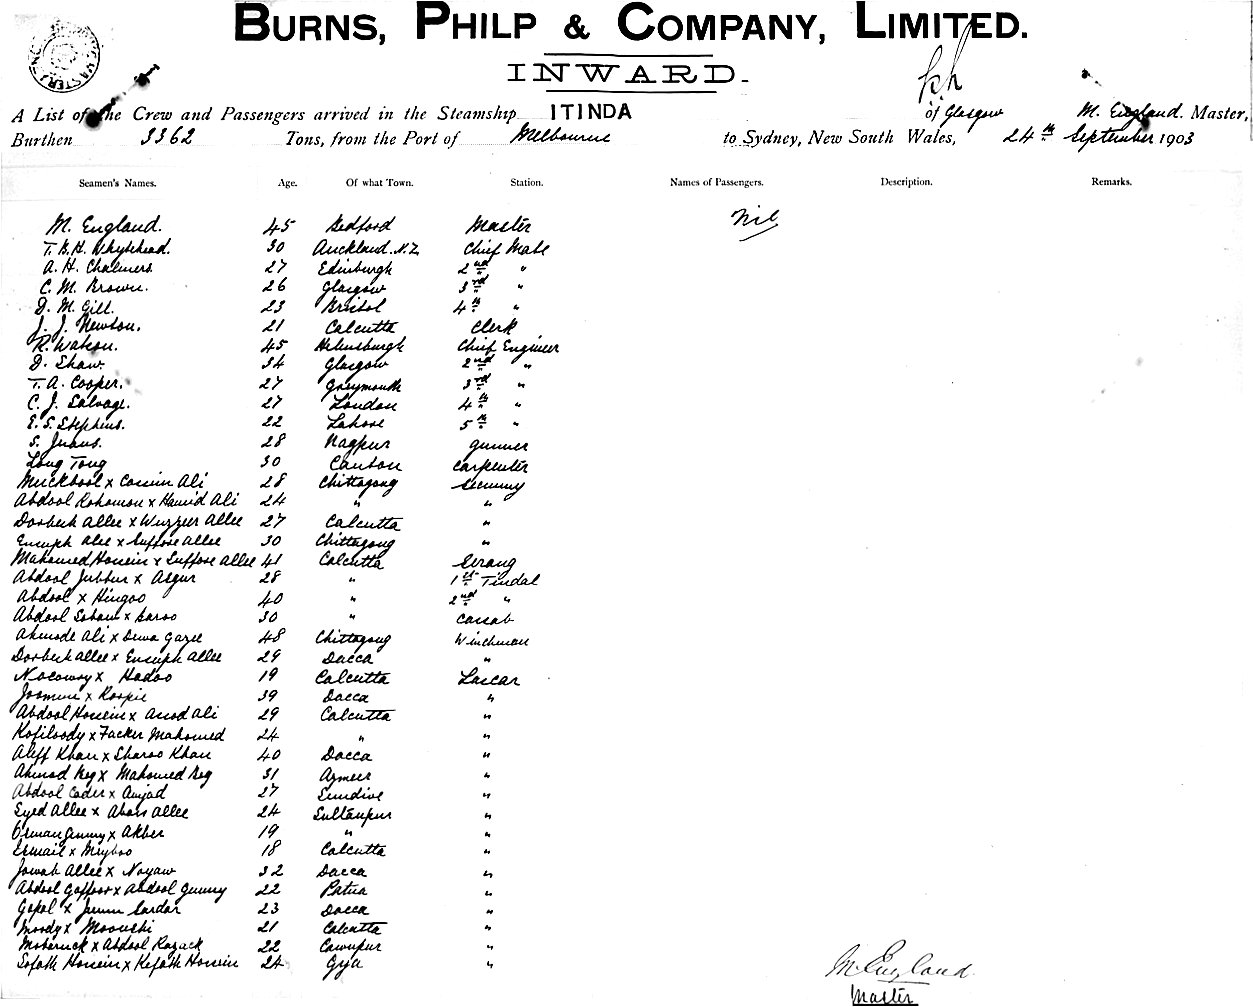 BURNS, PHILP & COMPANY, LIMITED.
INWARD.
A List of the Crew and Passengers arrived in the Steamship ITINDA of Glasgow M. England. Master,
Burthen 3362 Tons, from the Port of Melbourne to Sydney, New South Wales, 24th September 1903
Seamen's Names. Age. Of what Town. Station. Names of Passengers. Description. Remarks.
M. England. 45 Bedford Master Nil
T. B. H. Whytehead. 30 Auckland. N.Z. Chief Mate
A. H. Chalmers 27 Edinburgh 2nd "
C. M. Brown. 26 Glasgow 3rd "
D. M. Gill. 23 Bristol 4th "
J. J. Newton. 21 Calcutta Clerk
R. Watson. 45 Helensburgh Chief Engineer
D. Shaw. 34 Glasgow 2nd "
T. A. Cooper. 27 Greymouth 3rd "
C. J. Salvage. 27 London 4th "
E. S. Stephens. 22 Lahore 5th "
S. 28 Nagpur gunner
Long Tong 30 Canton Carpenter
Muckbool x Cassim Ali 28 Chittagong Secunny
Abdool Rohoman x Hamid Ali 24 " "
Dorbesh Allee x Wuzzeer Allee 27 Calcutta "
Eusuph Alee x Suffose Allee 30 Chittagong "
Mahomed Hossein x Suffose Allee 41 Calcutta Serang
Abdool Jubbur x Asgur 28 " 1st Tindal
Abdool x Hingoo 40 " 2nd "
Abdool x 30 " Cassab
Ahmode Ali x Dewa Gazee 48 Chittagong Winchman
Dorbesh Allee x Eusuph Allee 29 Dacca "
x Hadoo 19 Calcutta Lascar
x 39 Dacca "
Abdool Hossein x Assod Ali 29 Calcutta "
Kofiloody x Facker Mahomed 24 " "
Aleff Khan x Sharoo Khan 40 Dacca "
Ahmad Beg x Mahomed Beg 31 Azmeer "
Abdool Cader x Amjad 27 Sundive "
Syed Allee x Abass Allee 24 Sultanpur "
x Akber 19 " "
Esmail x 18 Calcutta "
Jowab Allee x 32 Dacca "
Abdool Gaffoor x Abdool Gunny 22 Patna "
Gopal x Sardar 23 Dacca "
Moody x Mooushi 21 Calcutta "
Moberuck x Abdool Razack 22 Cawnpur "
Sofath Hossein x Kefath Hossein 24 Gya "
M. England
Master